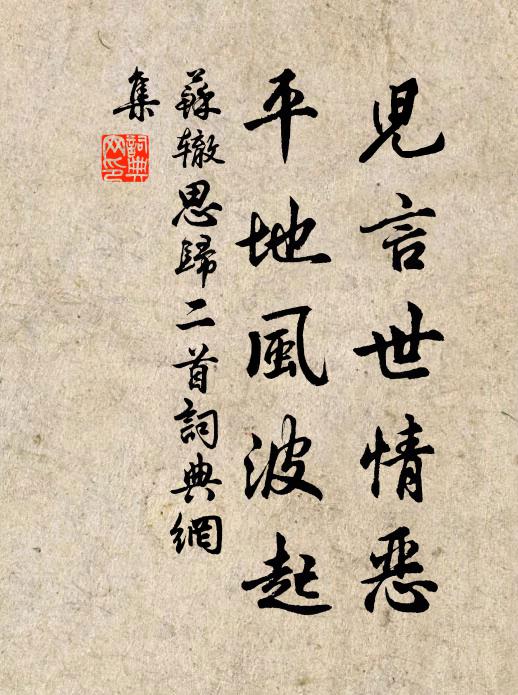 児言世情惡
平地風波起
蘇辙思歸二首詞典網
集
詞典
网印